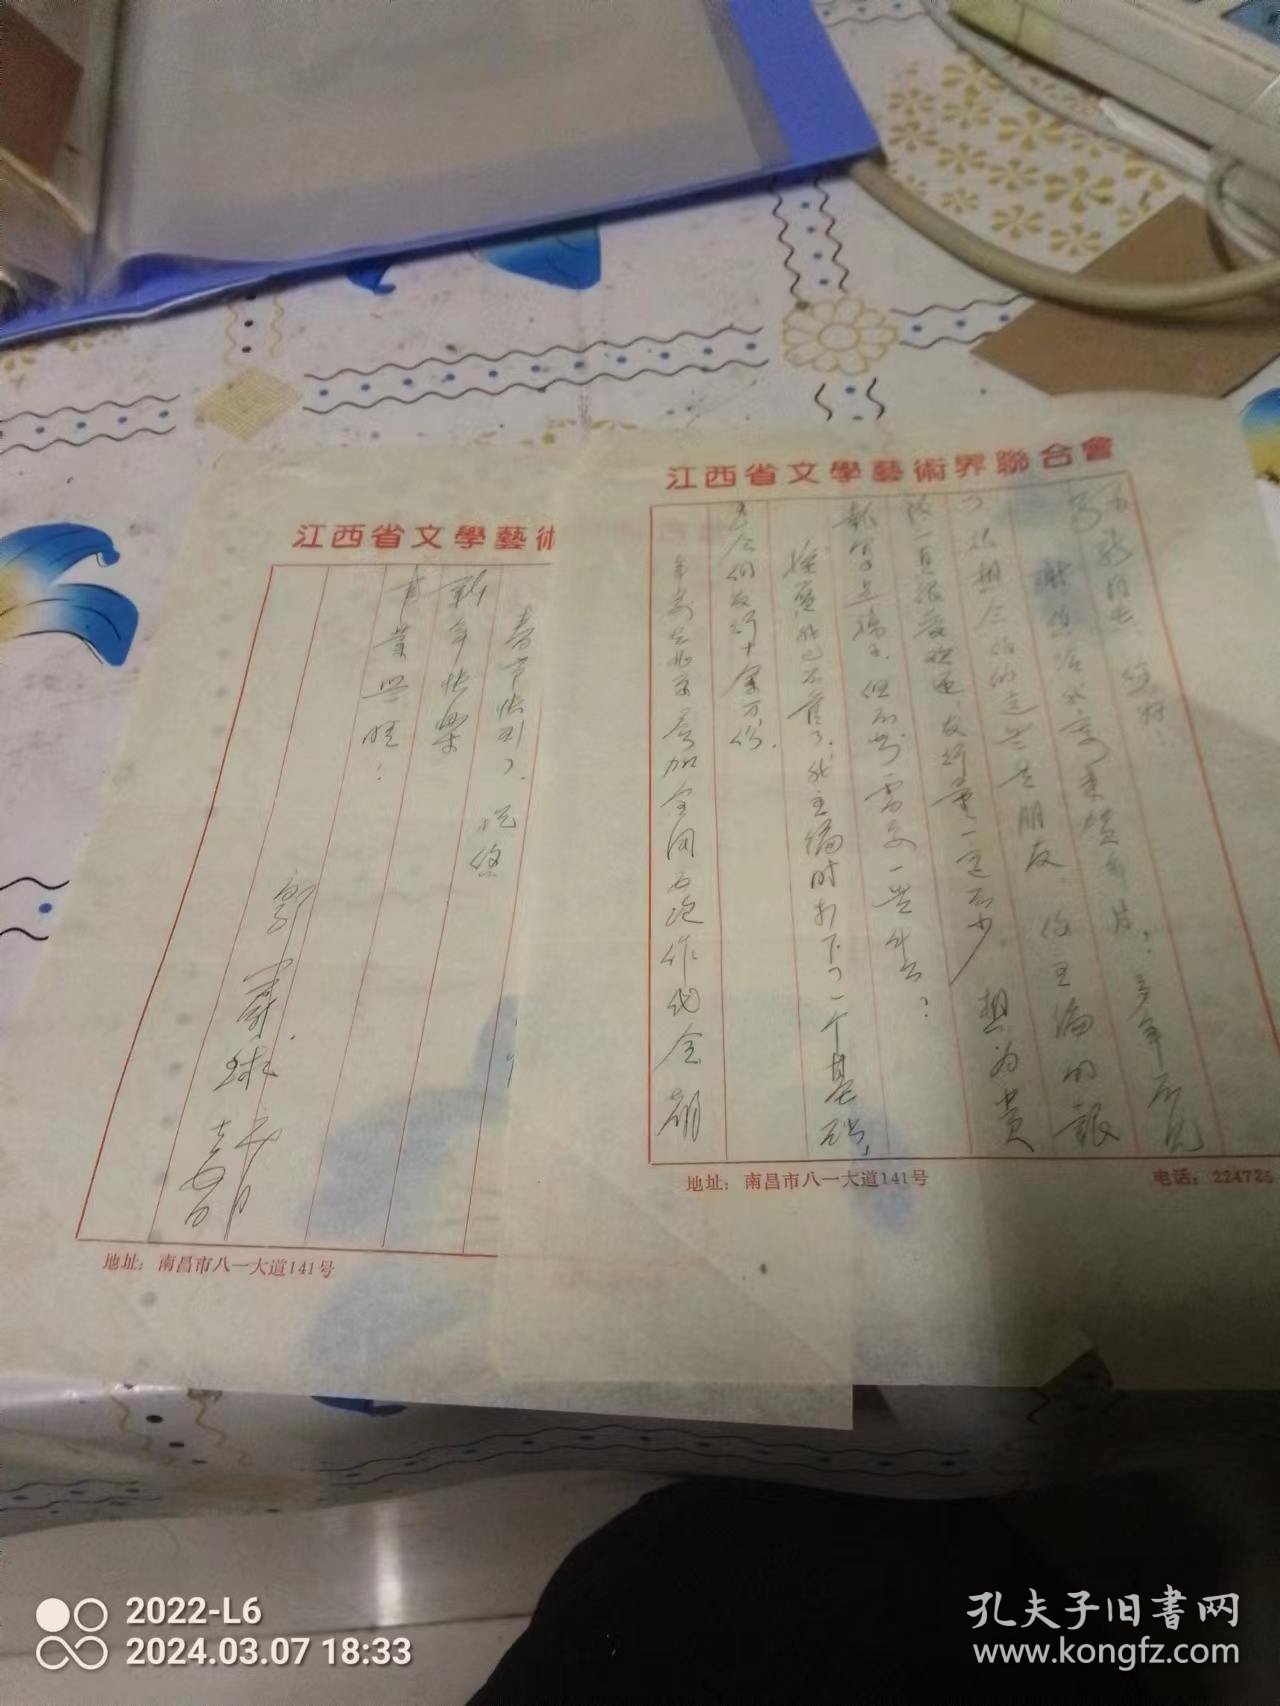 江西省文學藝術界聯合會
您好!
谢您给我寄来贺年片! 多年不见
了, 很想念你的这些老朋友. 你主编的报
一直很受欢迎, 发行量一定不少. 想为贵
报写点稿子, 但不知需要一些什么?
我已不管了. 我主编时打下了一个基础,
发行十余万份.
年前去北京参加全国五次作代会,
地址: 南昌市八一大道141号
电话: 224726
江西省文學藝術
春节快到了. 祝您
新年快乐
事業兴旺!
郭蔚球
地址: 南昌市八一大道141号
2022-L6
2024.03.07 18:33
孔夫子旧书网
www.kongfz.com